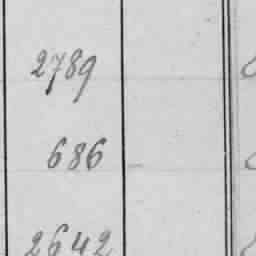 2789
686
2642